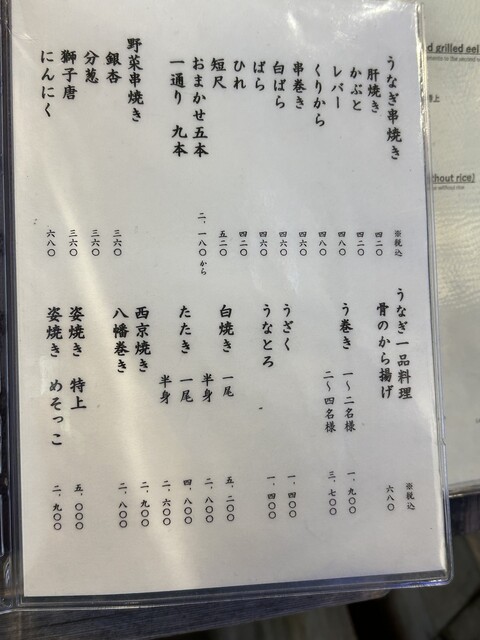 うなぎ串焼き ※税込
肝焼き 四二〇
かぶと 四二〇
レバー 四八〇
くりから 四八〇
串巻き 四六〇
白ばら 四六〇
ばら 四六〇
ひれ 四二〇
短尺 五二〇
おまかせ五本 二、一八〇から
一通り 九本
野菜串焼き
銀杏 三六〇
分葱 三六〇
獅子唐 三六〇
にんにく 六八〇
うなぎ一品料理 ※税込
骨のから揚げ 六八〇
う巻き 一〜二名様 一、九〇〇
二〜四名様 三、七〇〇
うざく 一、四〇〇
うなとろ 一、四〇〇
白焼き 一尾 五、二〇〇
半身 二、八〇〇
たたき 一尾 四、八〇〇
半身 二、六〇〇
西京焼き 二、九〇〇
八幡巻き 二、八〇〇
姿焼き 特上 五、〇〇〇
姿焼き めそっこ 二、九〇〇
d grilled eel
特上
thout rice)